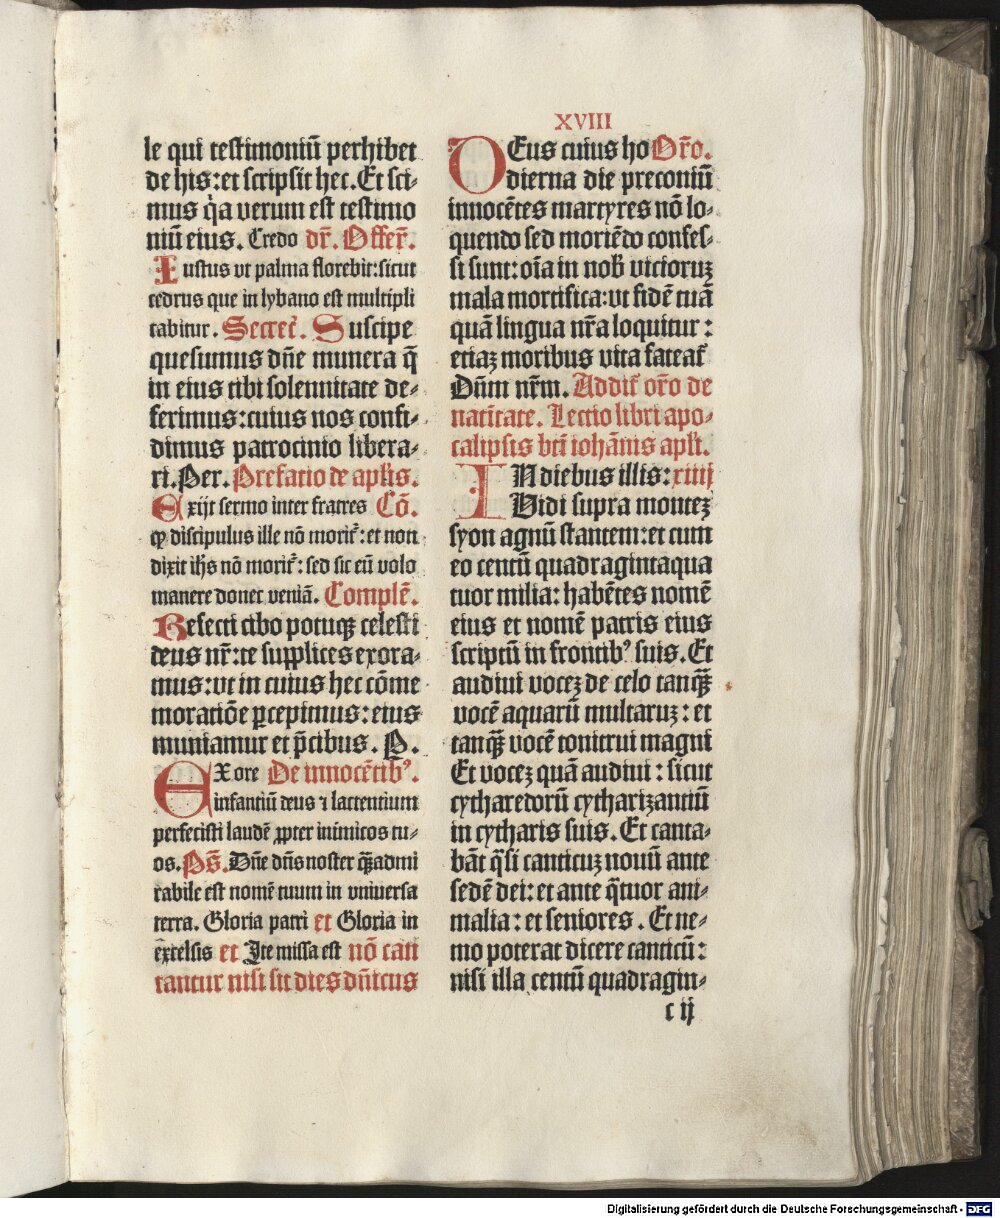 XVIII
le qui testimoniū perhibet
de his: et scripsit hec. Et sci-
mus q̇a verum est testimo
niū eius. Credo dr̄. Offer̄.
Iustus vt palma florebit: sicut
cedrus que in lybano est multipli
cabitur. Secret̄. Suscipe
quesumus dn̄e munera q̄
in eius tibi solennitate de-
ferimus: cuius nos confi-
dimus patrocinio libera-
ri. Per. Prefatio de apl̄is.
Exijt sermo inter fratres Cō.
ꝙ discipulus ille nō morit᷑: et non
dixit ih̄s nō morit᷑: sed sic eū volo
manere donec veniā. Complē.
Refecti cibo potuqꝫ celesti
deus nr̄: te supplices exora-
mus: vt in cuius hec cōme
moratiōe ꝑcepimus: eius
muniamur et p̄cibus. P.
EX ore De innocētibꝰ.
infantiū deus ⁊ lactentium
perfecisti laudē ꝓpter inimicos tu-
os. Ps̄. Dn̄e dn̄s noster qꝫ̄ admi
rabile est nomē tuum in vniuersa
terra. Gloria patri et Gloria in
excelsis et Ite missa est nō can
tantur nisi sit dies dn̄icus
DEus cuius ho Or̄o.
dierna die preconiū
innocētes martyres nō lo-
quendo sed moriēdo confes-
si sunt: oīa in nob̄ vicioruꝫ
mala mortifica: vt fidē tuā
quā lingua nr̄a loquitur:
etiaꝫ moribus vita fateat᷑
Dn̄m nr̄m. Addit᷑ or̄o de
natītate. Lectio libri apo-
calipsis btī iohānis apl̄i.
IN diebus illis: xiiij
Vidi supra monteꝫ
syon agnū stantem: et cum
eo centū quadragintaqua
tuor milia: habētes nomē
eius et nomē patris eius
scriptū in frontibꝰ suis. Et
audiui voceꝫ de celo tanqꝫ̄
vocē aquarū multaruꝫ: et
tanqꝫ̄ vocē tonitrui magni
Et voceꝫ quā audiui: sicut
cytharedorū cytharizantiū
in cytharis suis. Et canta-
bāt q̄si canticuꝫ nouū ante
sedē dei: et ante q̄tuor ani-
malia: et seniores. Et ne-
mo poterat dicere canticū:
nisi illa centū quadragin-
c ij
Digitalisierung gefördert durch die Deutsche Forschungsgemeinschaft - DFG